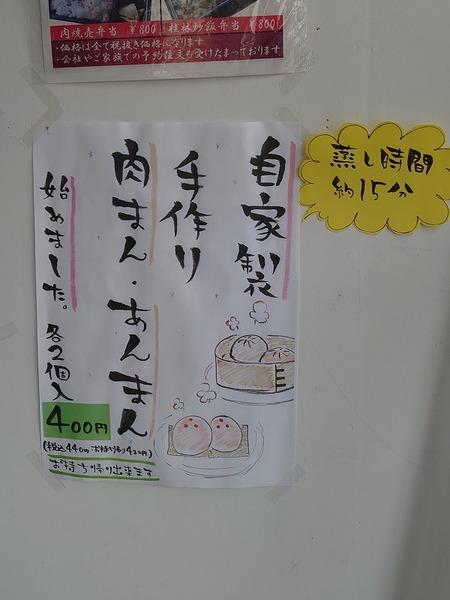 肉焼売弁当 ￥800 ・桂林炒飯弁当 ￥800
・価格は全て税抜き価格になります
・会社やご家族での予約注文も受けたまっております
蒸し時間
約15分
自家製
手作り
肉まん・あんまん
始めました。各2個入
400円
(税込440円 お持ち帰り432円)
お持ち帰り出来ます